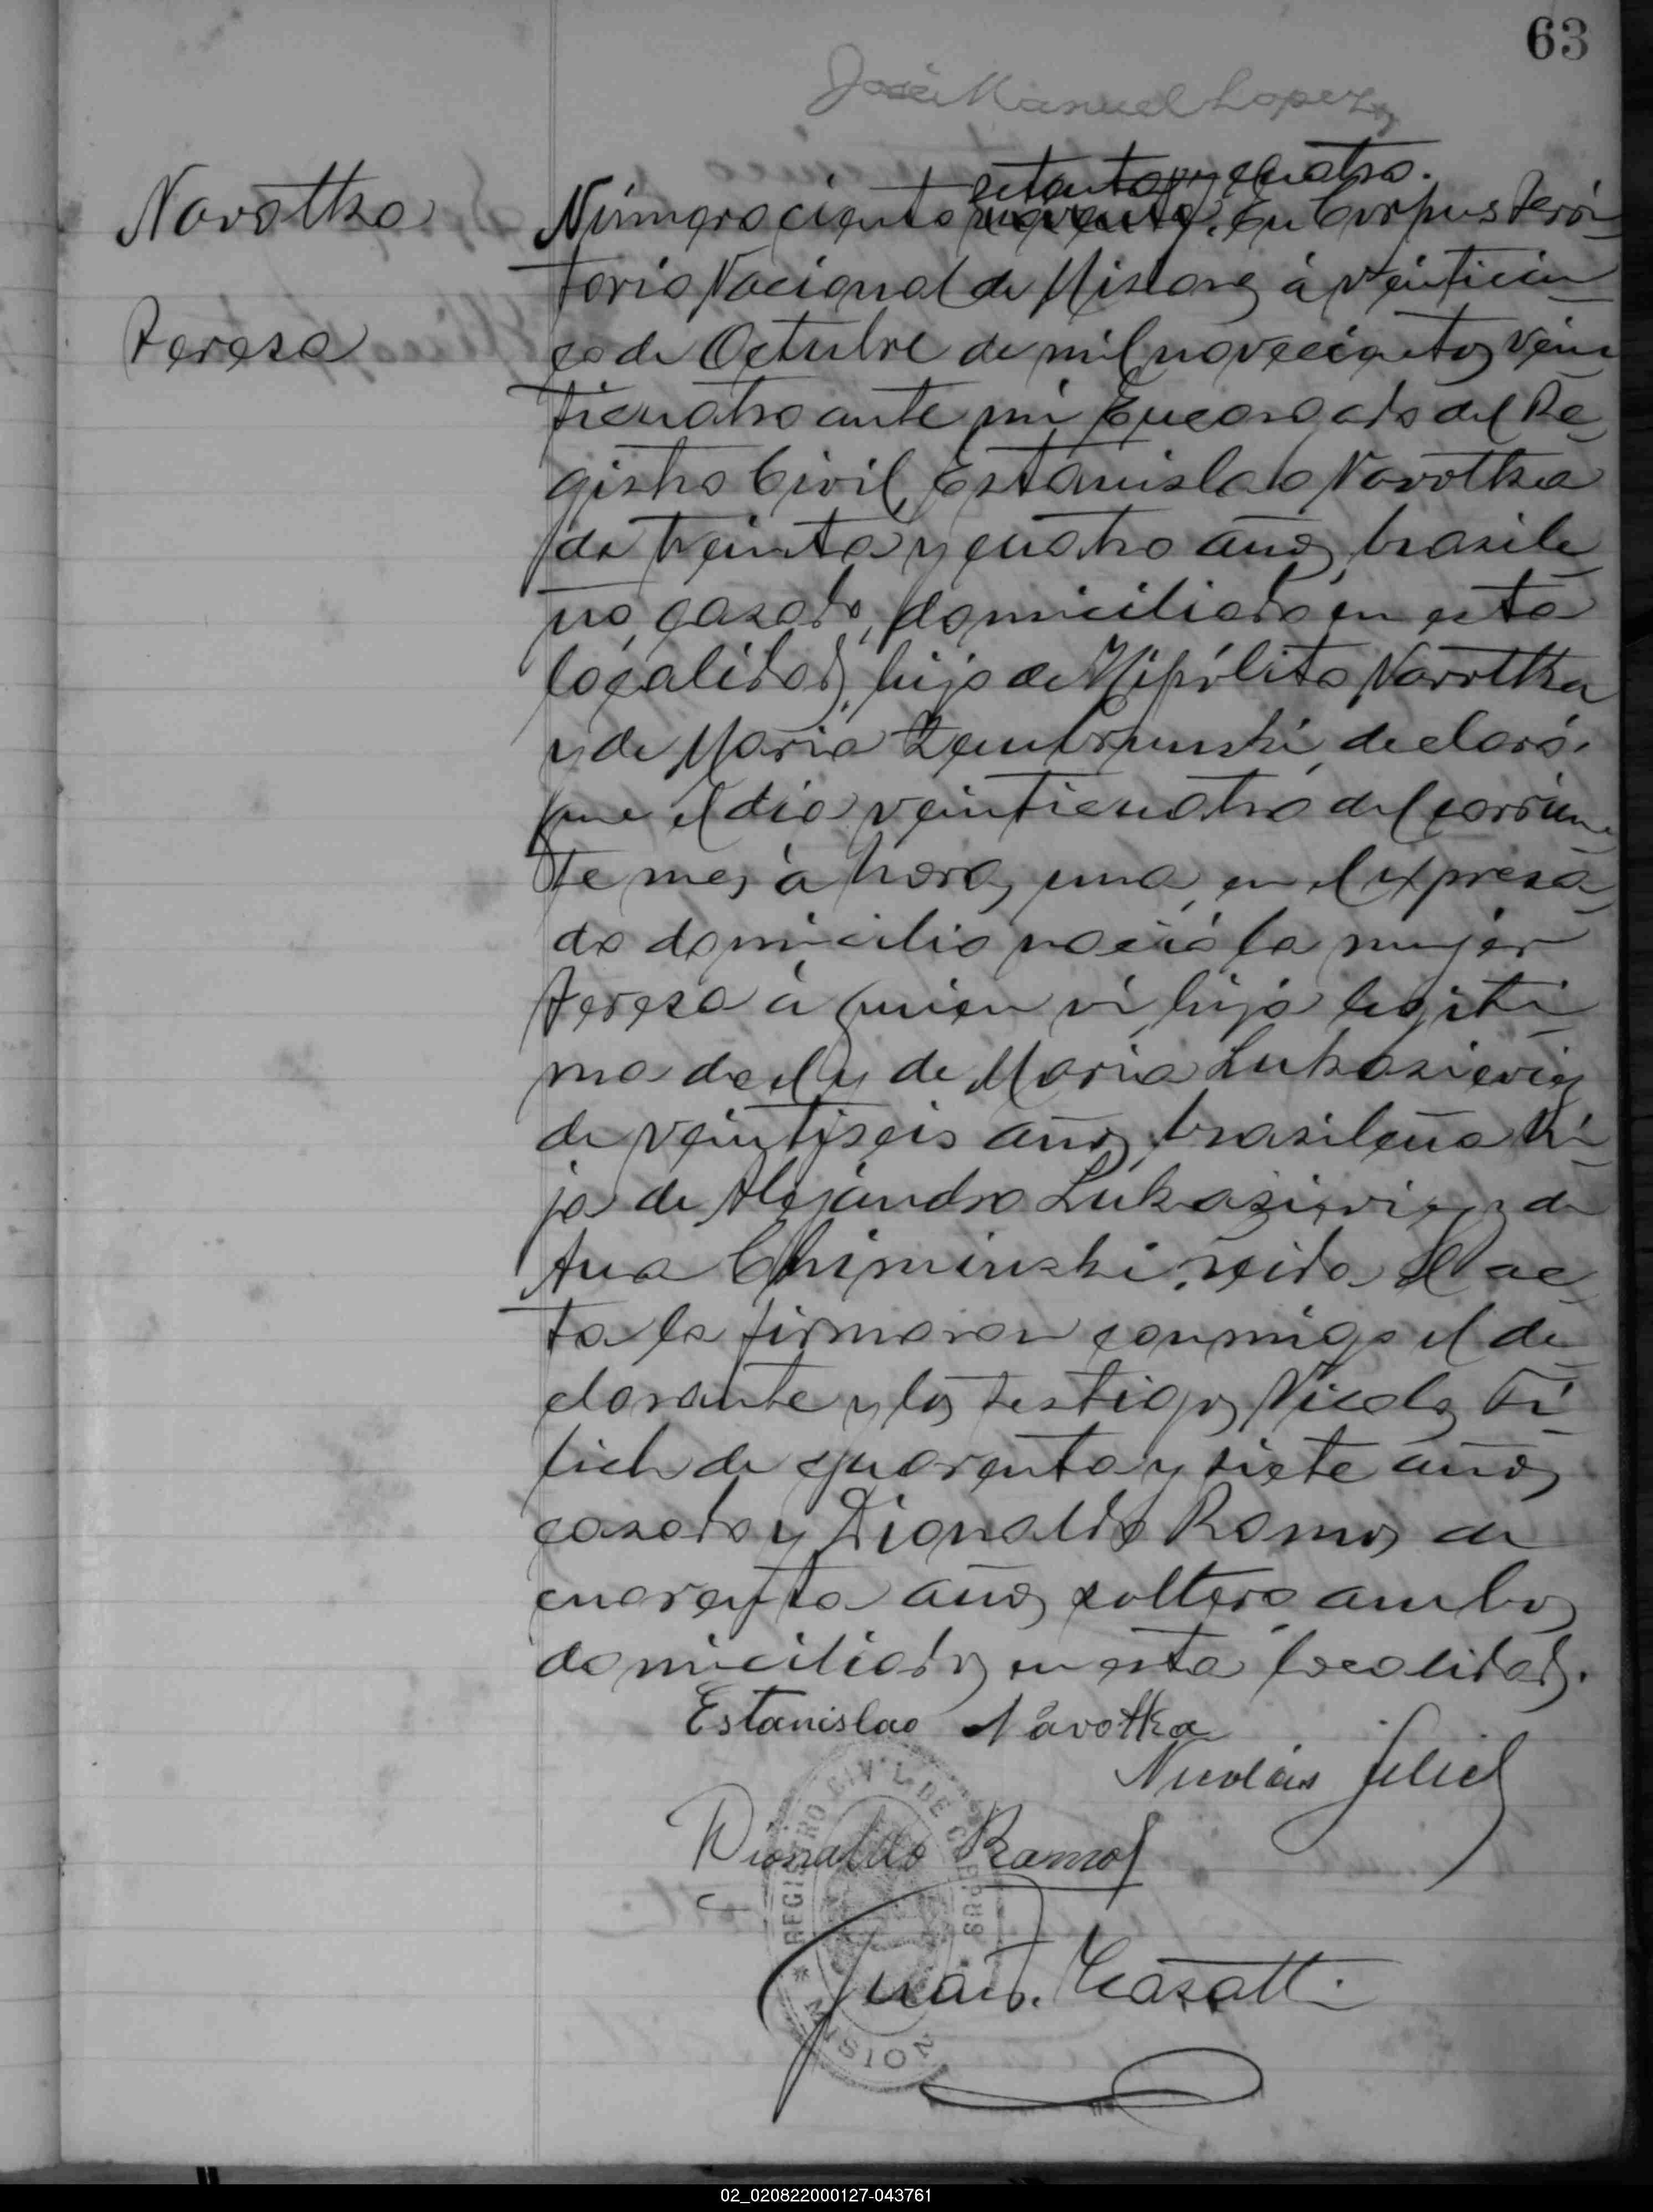 63
José Manuel Lopez
Navotka
Teresa
setenta y cuatro.
Número ciento noventa. En Corpus Terri
torio Nacional de Misiones á veinticin
co de Octubre de mil novecientos vein
ticuatro ante mi Encargado del Re
gistro Civil, Estanislao Navotka
de treinta y cuatro años, brasile
ño, casado, domiciliado en esta
localidad, hijo de Hipólito Navotka
y de Maria declaró:
que el dia veinticuatro del corrien
te mes á horas una, en el expresa
do domicilio nació la mujer
Teresa á quien ví hija legíti
ma de el y de Maria Lukasievicz
de veintiseis años, brasileña hi
ja de Alejandro Lukasievicz y de
Ana Chiminski. Leida el ac
ta la firmaron conmigo el de
clarante y los testigos Nicolas Fi
lich de cuarenta y siete años
casado y Dionaldo Ramos de
cuarenta años soltero ambos
domiciliados en esta localidad.
Estanislao Navotka
Nicolás
Dionaldo Ramos
Juan D. Casatti
REGISTRO CIVIL DE CORPUS
* MISIONES *
02_020822000127-043761